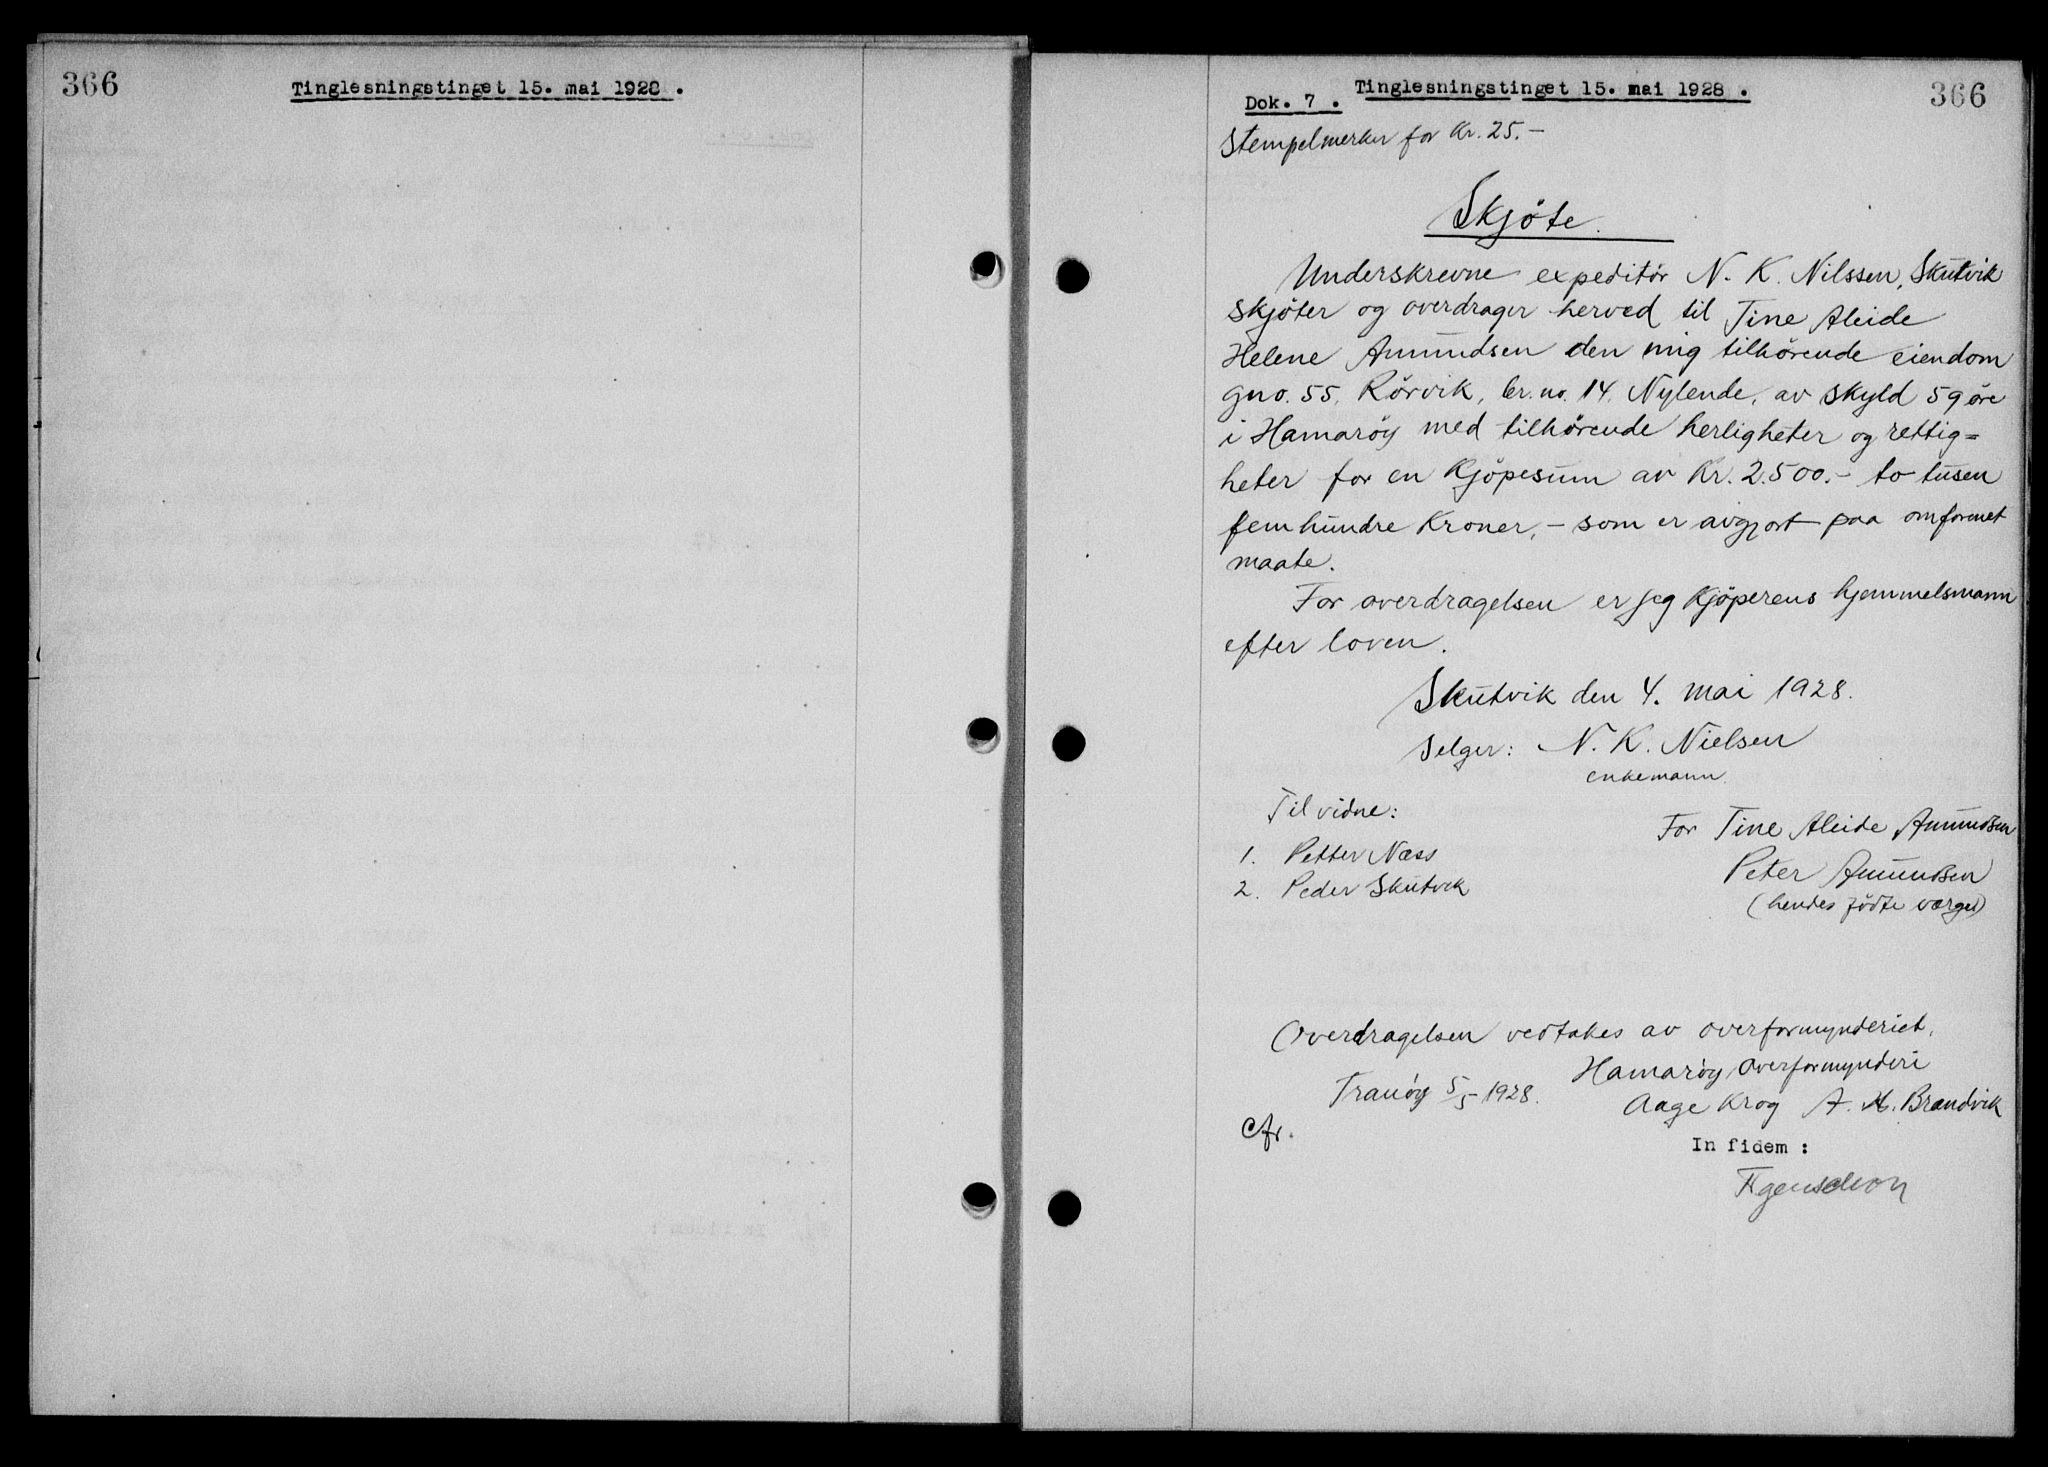 366
Tinglesningstinget 15. mai 1928 .
Tinglesningstinget 15. mai 1928 .
366
Dok. 7 .
Stempelmerker for Kr. 25.-
Skjöte.
Underskrevne expeditör N. K. Nilssen, Skutvik
skjöter og overdrager herved til Tine Aleide
Helene Amundsen den mig tilhörende eiendom
gno. 55, Rörvik, br. no. 14, Nylende, av skyld 59 öre
i Hamaröy med tilhörende herligheter og rettig=
heter for en kjöpesum av Kr. 2.500.- to tusen
fem hundre Kroner,- som er avgjort paa omforenet
maate.
For overdragelsen er jeg kjöperens hjemmelsmann
efter loven.
Skutvik den 4. mai 1928.
Selger: N. K. Nielsen
enkemann.
Til vidne:
1. Petter Næss
2. Peder Skutvik
For Tine Aleide Amundsen
Peter Amundsen
(hendes födte værge)
Overdragelsen vedtakes av overformynderiet.
Hamaröy overformynderi
Tranöy 5/5 1928.
Aage Krog A. M. Brandvik
Afr.
In fidem :